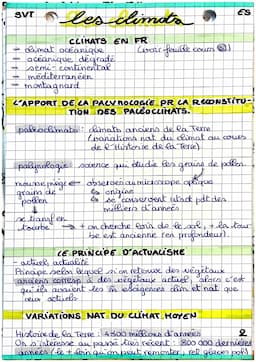 SVT
ES
les climats
CLIMATS EN FR
- climat océanique (voir feuille cours
- océanique dégradé
- semi-continental
- méditerranéen
- montagnard
L'APPORT DE LA PALYNOLOGIE PR LA RECONSTITU-
TION DES PALÉOCLIMATS.
paléoclimats : climats anciens de la Terre
(variations nat du climat au cours
de l'Histoire de la Terre)
palynologie : science qui étudie les grains de pollen
observés au microscope optique
grains de pollen
origine
se conservent
milliers d'années
tourbe → on cherche loin de le sol, + la tour
be est ancienne (en profondeur).
LE PRINCIPE D'ACTUALISME
- actuel, actualité
Principe selon lequel si on retrouve des végétaux
anciens à des végétaux actuels, alors c'est
qu'ils avaient les m exigences clim et nat que
ceux actuels
VARIATIONS NAT DU CLIMAT MOYEN
2
Histoire de la Terre : 4500 millions d'années
On s'intéresse au passé très récent : 800 000 dernières
années (le + loin qu'on peut remonter,